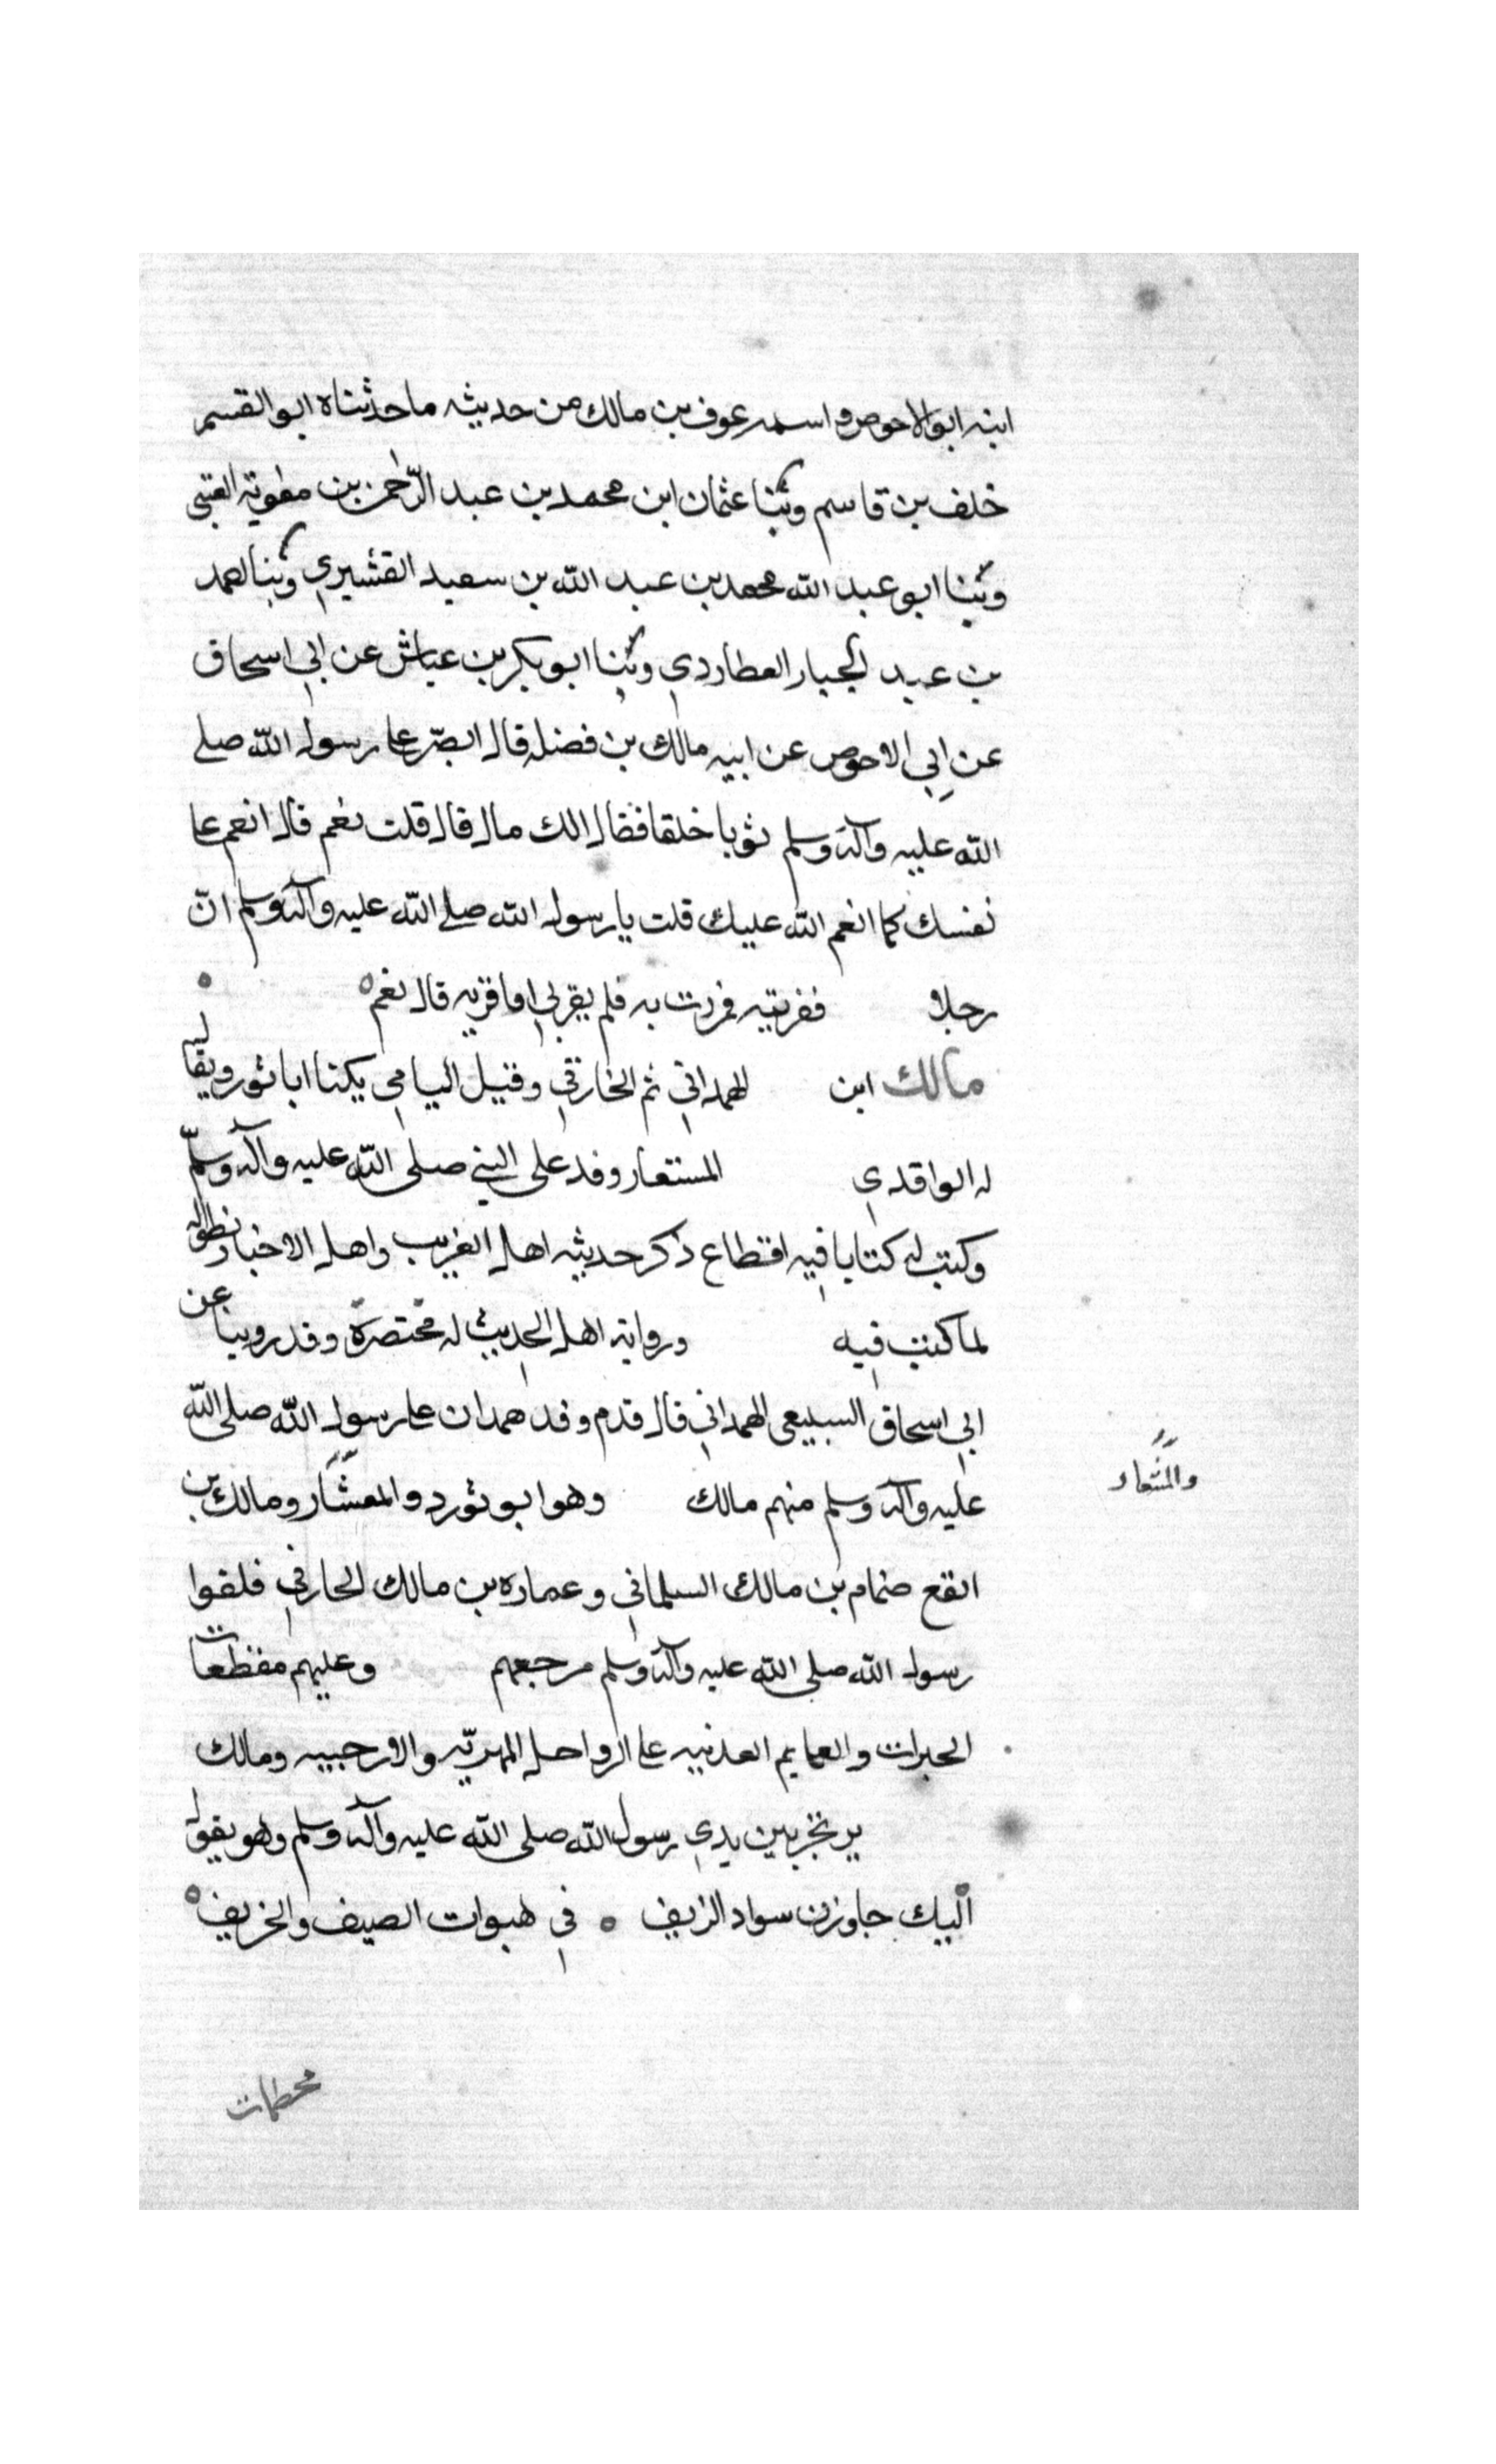 ابنه ابو الاحوص واسمه عوف بن مالك من حديثه ما حدثناه ابو القسم
خلف بن قاسم وثنا عثمان ابن محمد بن عبد الرّحمن بن معوية العتبى
وثنا ابو عبد الله محمد بن عبد الله بن سعيد القشيري وثنا احمد
بن عبد الجبار العطاردي وثنا ابو بكر بن عياش عن ابي اسحاق
عن ابي الاحوص عن ابيه مالك بن فضله قال ابصر عا رسول الله صلى
الله عليه وآله وسلم ثوبا خلقا فقال الك مال قال قلت نعم قال انعم عا
نفسك كما انعم الله عليك قلت يا رسول الله صلى الله عليه وآله وسلم انّ
رجلا فقريته فمررت به فلم يقربي افاقريه قال نعم
مالك ابن الهمداني ثم الخارقي وقيل اليامي يكنا ابا ثور ويقال
له الواقدي المستعار وفد على النبي صلى الله عليه وآله وسلّم
وكتب له كتابا فيه اقطاع ذكر حديثه اهل الغريب واهل الاخبار بطوله
لما كتب فيه ورواية اهل الحديث له مختصرة وقد روينا عن
ابي اسحاق السبيعى الهمداني قال قدم وفد همدان عا رسول الله صلى الله
عليه وآله وسلم منهم مالك وهو ابو ثور دو المعشار ومالك بن
والمشعار
انقع ضمام بن مالك السلماني وعماره بن مالك الحارفي فلقوا
رسول الله صلى الله عليه وآله وسلم مرجعهم وعليهم مقطعات
الحبرات والعمايم العدنيه عا الرواحل المهريّه والارحبيه ومالك
يرتجز بين يدي رسول الله صلى الله عليه وآله وسلم وهو يقول
اليك جاوزن سواد الريف ه في هبوات الصيف والخريف ه
محطمات